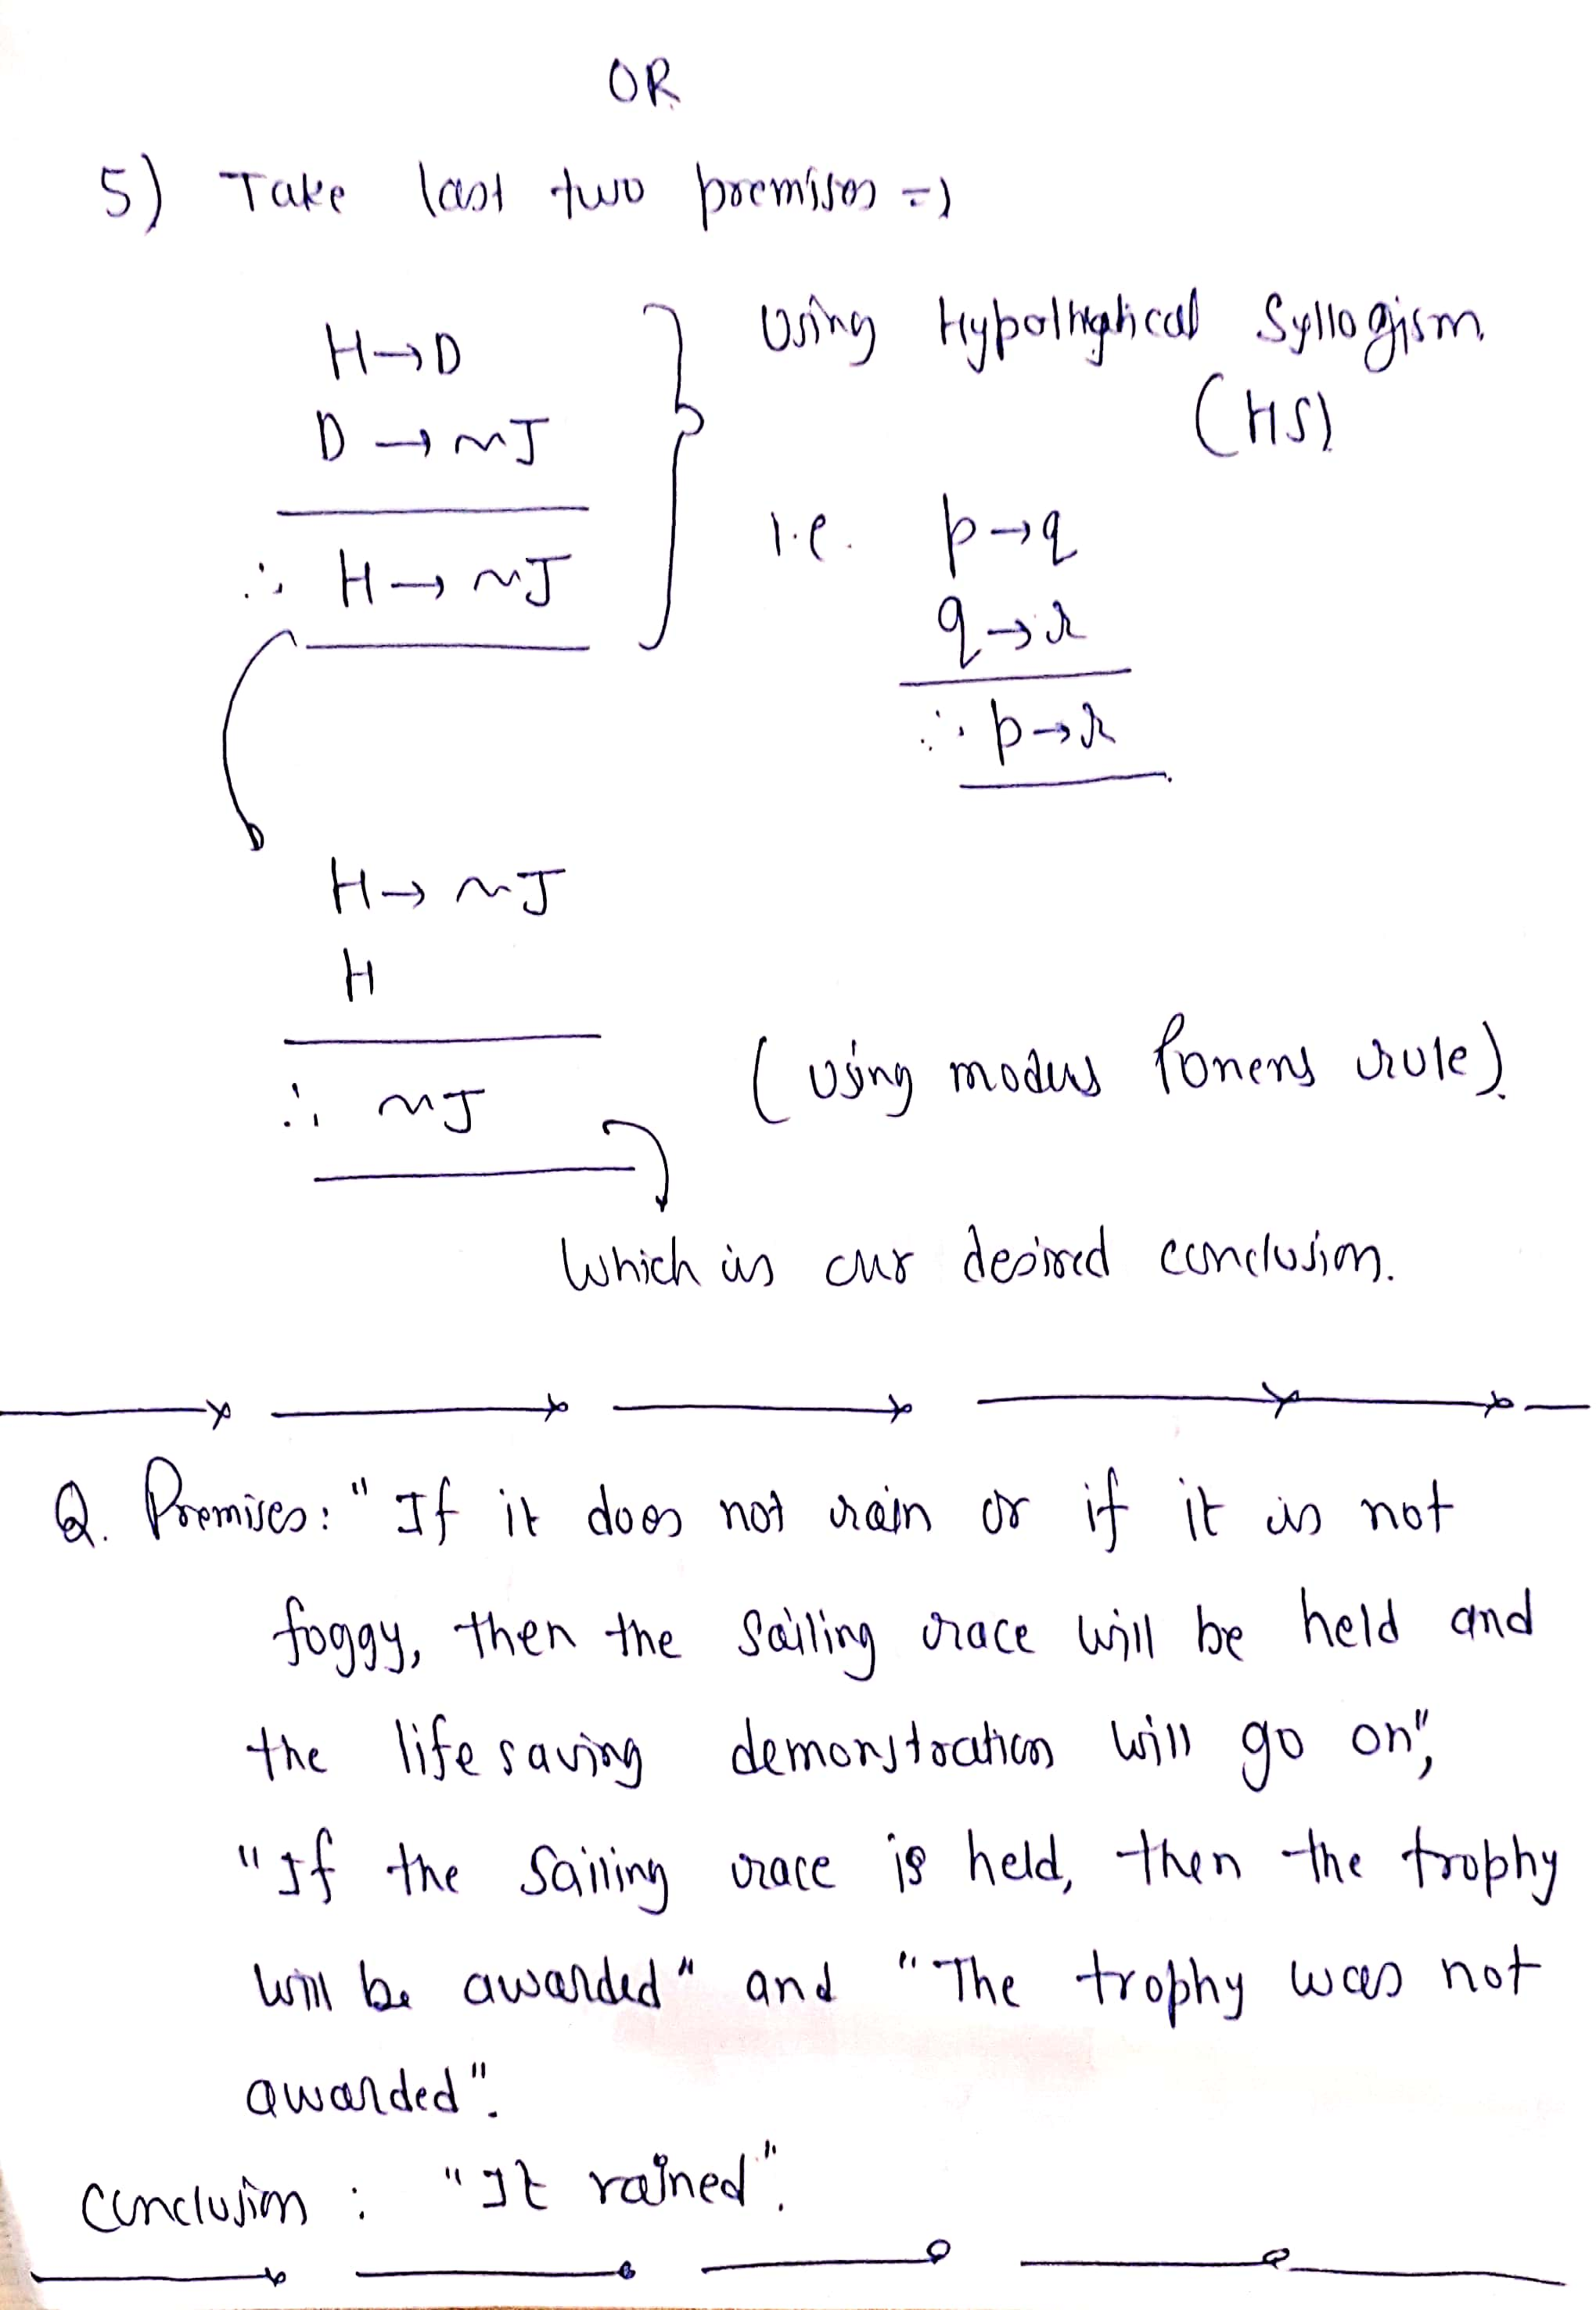 OR
5) Take last two premises ⇒
H→D
D→~J
∴ H→~J
Using Hypothetical Syllogism
(HS)
i.e. p→q
q→r
∴ p→r
H→~J
H
∴ ~J
(Using modus Ponens rule).
Which is our desired conclusion.
Q. Premises: "If it does not rain or if it is not
foggy, then the sailing race will be held and
the life saving demonstration will go on",
"If the sailing race is held, then the trophy
will be awarded" and "The trophy was not
awarded".
Conclusion : "It rained".